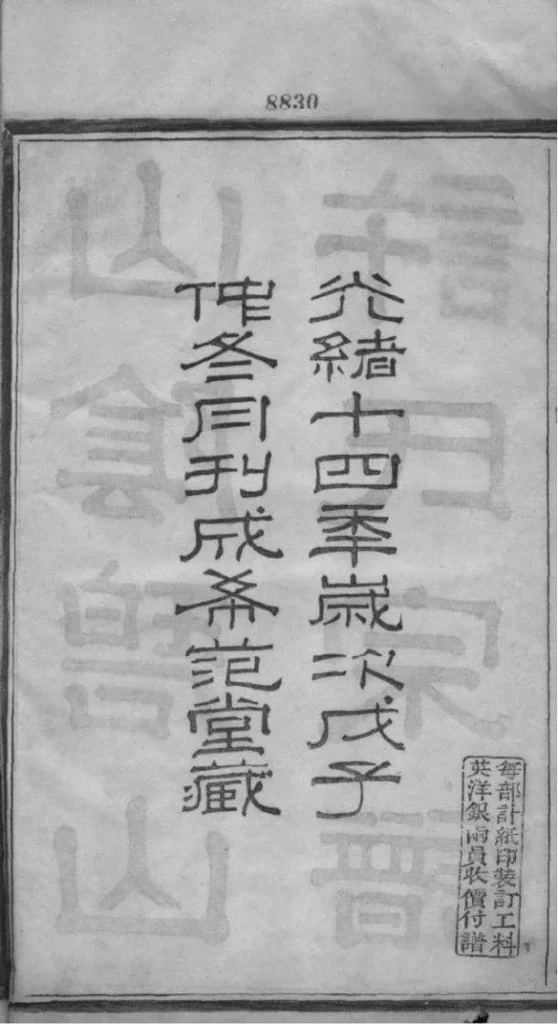 8830
光緒十四年歲次戊子
仲冬月刊成希范堂藏
每部計紙印裝訂工料
英洋銀兩員收價付譜